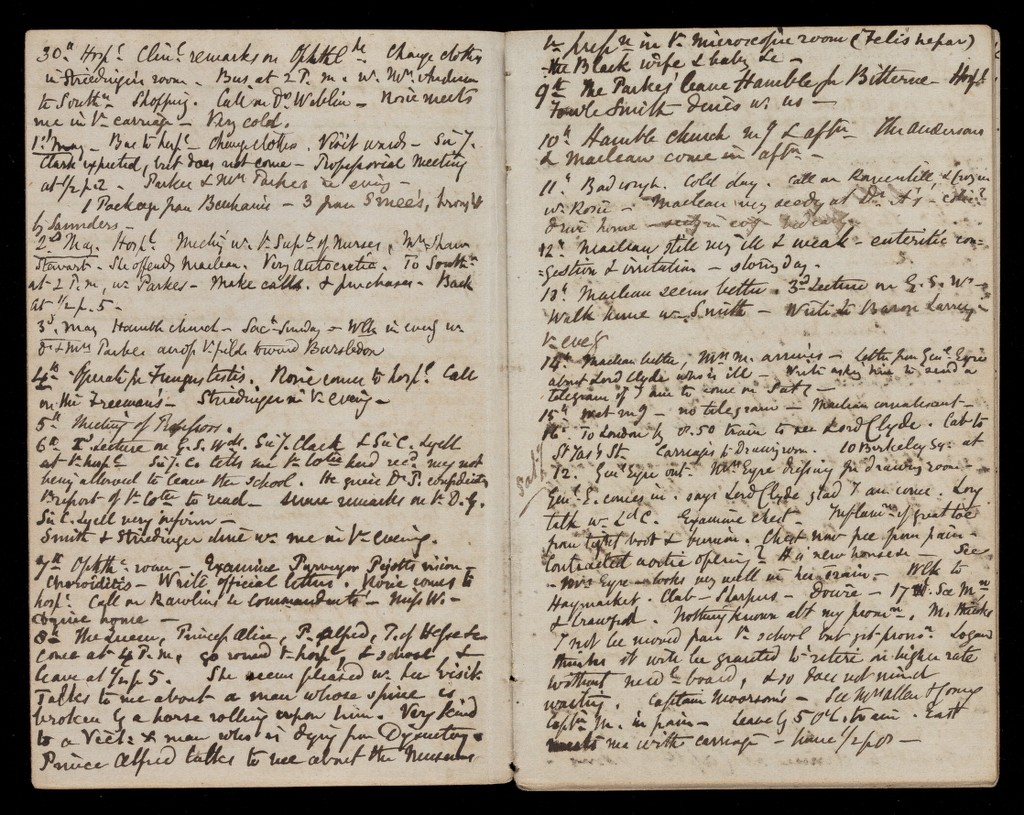 30th Hospl. Clinl. remarks on Ophthl de Change clothes
in Striedinger's room. Bus at 2 P.m. w. Mrs. Anderson
to Southn. Shopping. Call on Dr. Weldin - Rosie meets
me in ye carriage - Very cold.
1st May - Bus to hospl. change clothes. Visit wards - Sir J.
Clark expected, but does not come - Professorial Meeting
at 1/2 p. 2 - Parkes & Mrs Parkes in eveng -
1 Package from Benhams - 3 from Smee's, brought
by Saunders -
2d May. Hospl. Meeting w. ye Supt. of Nurses, Mrs Shaw
Stewart - She offends Maclean. Very autocratic. To Southn.
at 2 P.m, w. Parkes - make calls & purchases - Back
at 1/2 p. 5 -
3d. May Hamble church - Sact. Sunday - Wlk in eveng w.
Dr & Mrs Parkes across ye fields toward Bursledon
4th Operate for Fungus testis. Rosie comes to hospl. Call
on the Freemans - Striedinger in ye eveng -
5th Meeting of Professors.
6th Lecture on G.S. Wds. Sir J. Clark & Sir C. Lyell
at ye hospl. Sir J. C. tells me ye Cottee had recd. my not
being allowed to leave the school. He gives Dr P. confidential
report of ye Cottee to read - some remarks on ye D.G.
Sir C. Lyell very infirm -
Smith & Striedinger dine w. me in ye evening.
7th Ophthc. room - Examine Purveyor Pigott's vision -
Choroiditis - Write official letters. Rosie comes to
hospl. Call on Rawlins & Commandants - Miss W. -
drive home -
8th The Queen, Princess Alice, P. Alfred, P. of Hesse &c
come at 4 P.m, go round ye hospl. & school, &
leave at 1/4 p 5. She seems pleased w. her visit.
Talks to me about a man whose spine is
broken by a horse rolling upon him. Very kind
to a Vict: X man who is dying from Dysentery.
Prince Alfred talks to me about the Museum
ye prepns in ye Microscope room (Felis hepar)
- the Black wife & baby &c -
9th The Parkes' leave Hamble for Bitterne - Hospl.
Fowle Smith dines w. us -
10th Hamble church mg & aftn. The Andersons
& Maclean come in aftn. -
11th Bad cough. Cold day. Call on
w. Rosie - Maclean very seedy at Dr. A's -
drive home -
12th Maclean still very ill & weak - enteritic con-
=gestion & irritation - stormy day.
13th Maclean seems better. 3d Lecture on G.S. Ws -
Walk home w. Smith - Write to Baron Larrey in
ye eveg
14th Maclean better, Mrs M. arrives - Letter from Genl. Eyre
about Lord Clyde who is ill - Write asking him to send a
telegram if I am to come on Satdy -
15th wet mg - no telegram - Maclean convalescent -
Satdy
16th To London by 8.50 train to see Lord Clyde. Cab to
St Jas's St. Carriages to Drawg room. 10 Berkeley Sq. at
12. Genl Eyre out - Mrs Eyre dressing for Drawing room -
Genl E. comes in. says Lord Clyde glad I am come. Long
talk w. Ld C. Examine chest - Inflamn. of great toe
from tight boot & bunion. Chest now free from pain -
Contracted aortic opening? H a' new noise &c - See
Mrs Eyre - looks very well in her train - Wlk to
Haymarket. Club - Sharpus - Dowie - See
& Crawford. Nothing known abt my promn. M. thinks
I not be moved from ye school but get promn. Logan
thinks it will be granted to retire on higher rate
without medl. board, & so does not mind
waiting. Captain Moorsom's -
Captn M. in pain - Leave by 5 o'C. train - East
meets me with carriage - home 1/2 p 8 -